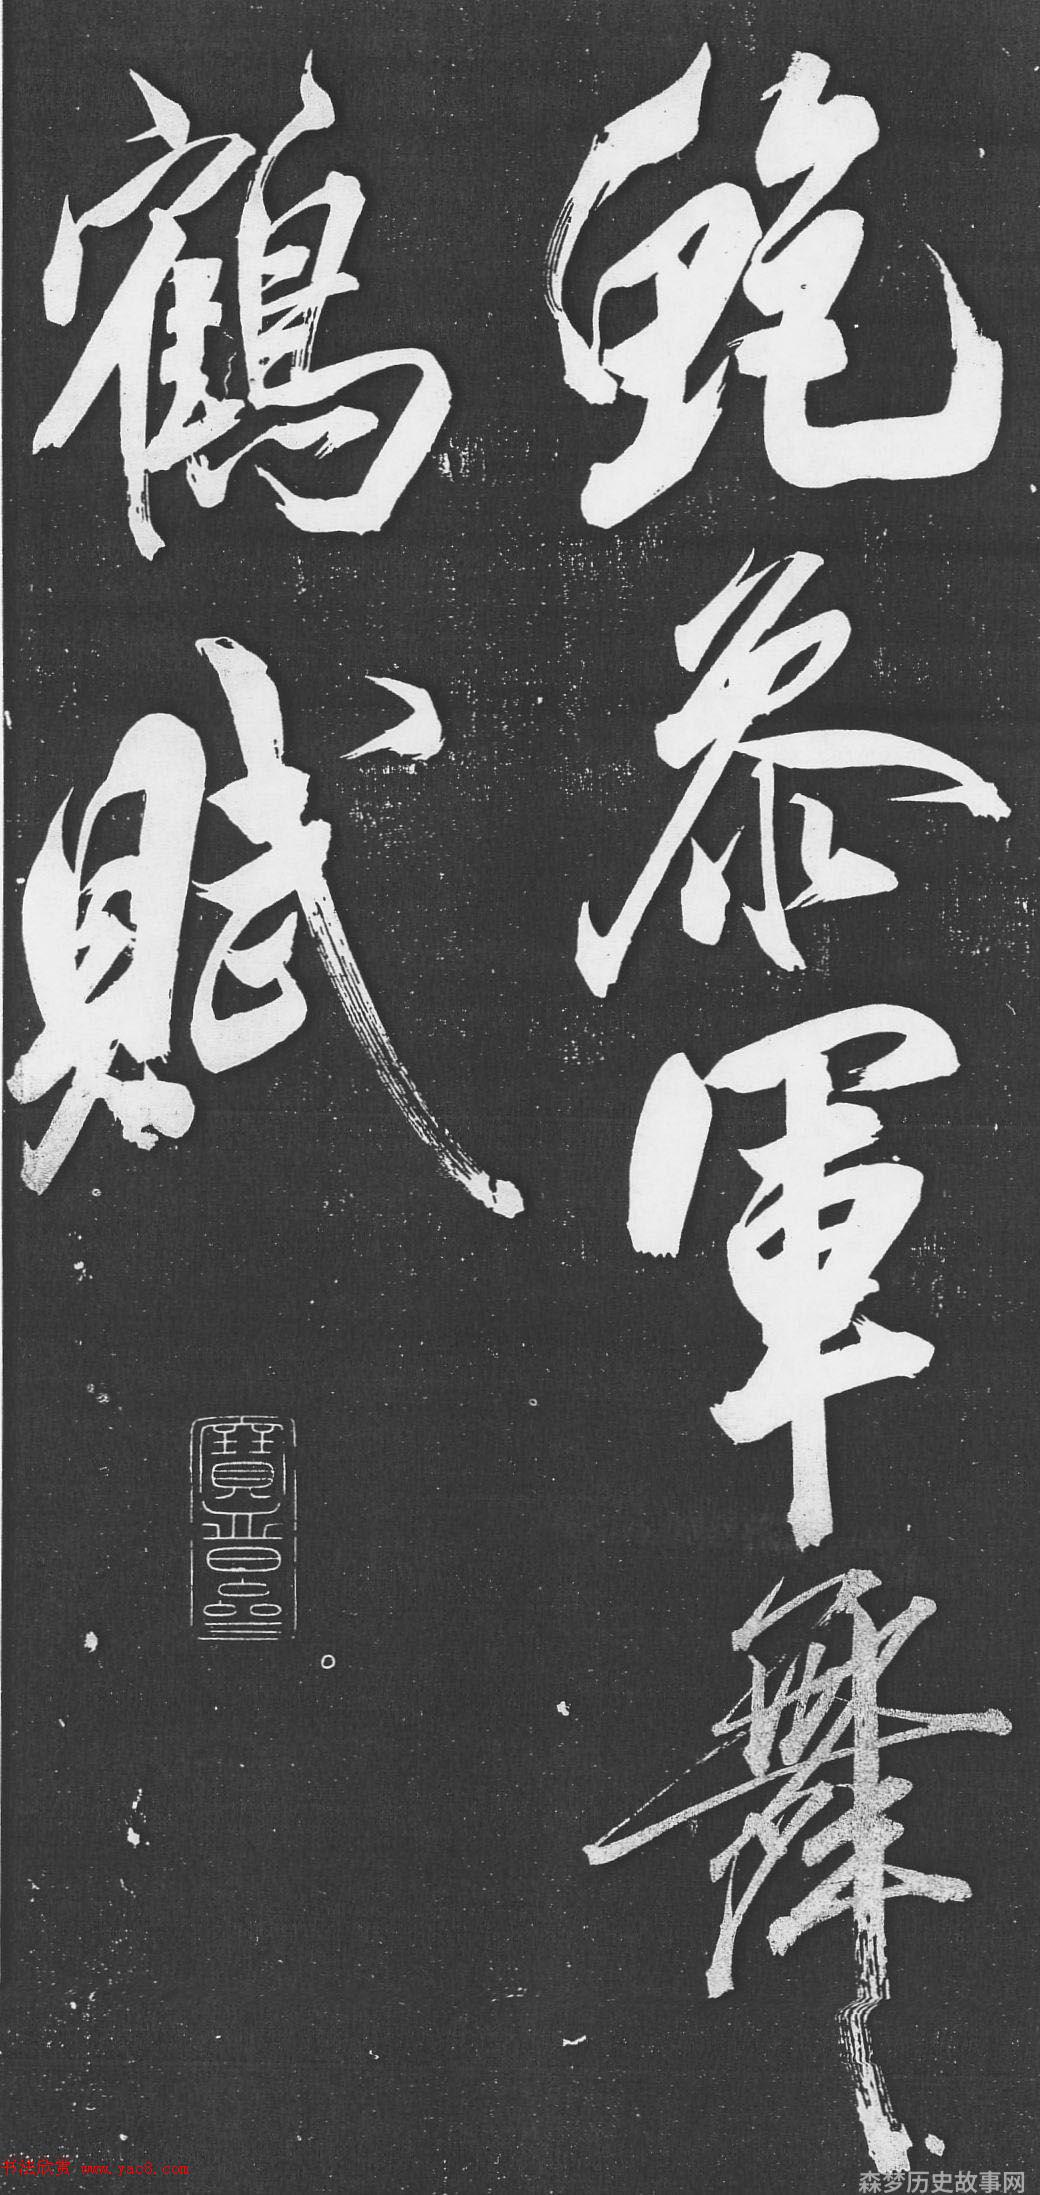 鮑叅軍舞
鶴賦
寶晉齋
书法欣赏 www.yac8.com
森梦历史故事网